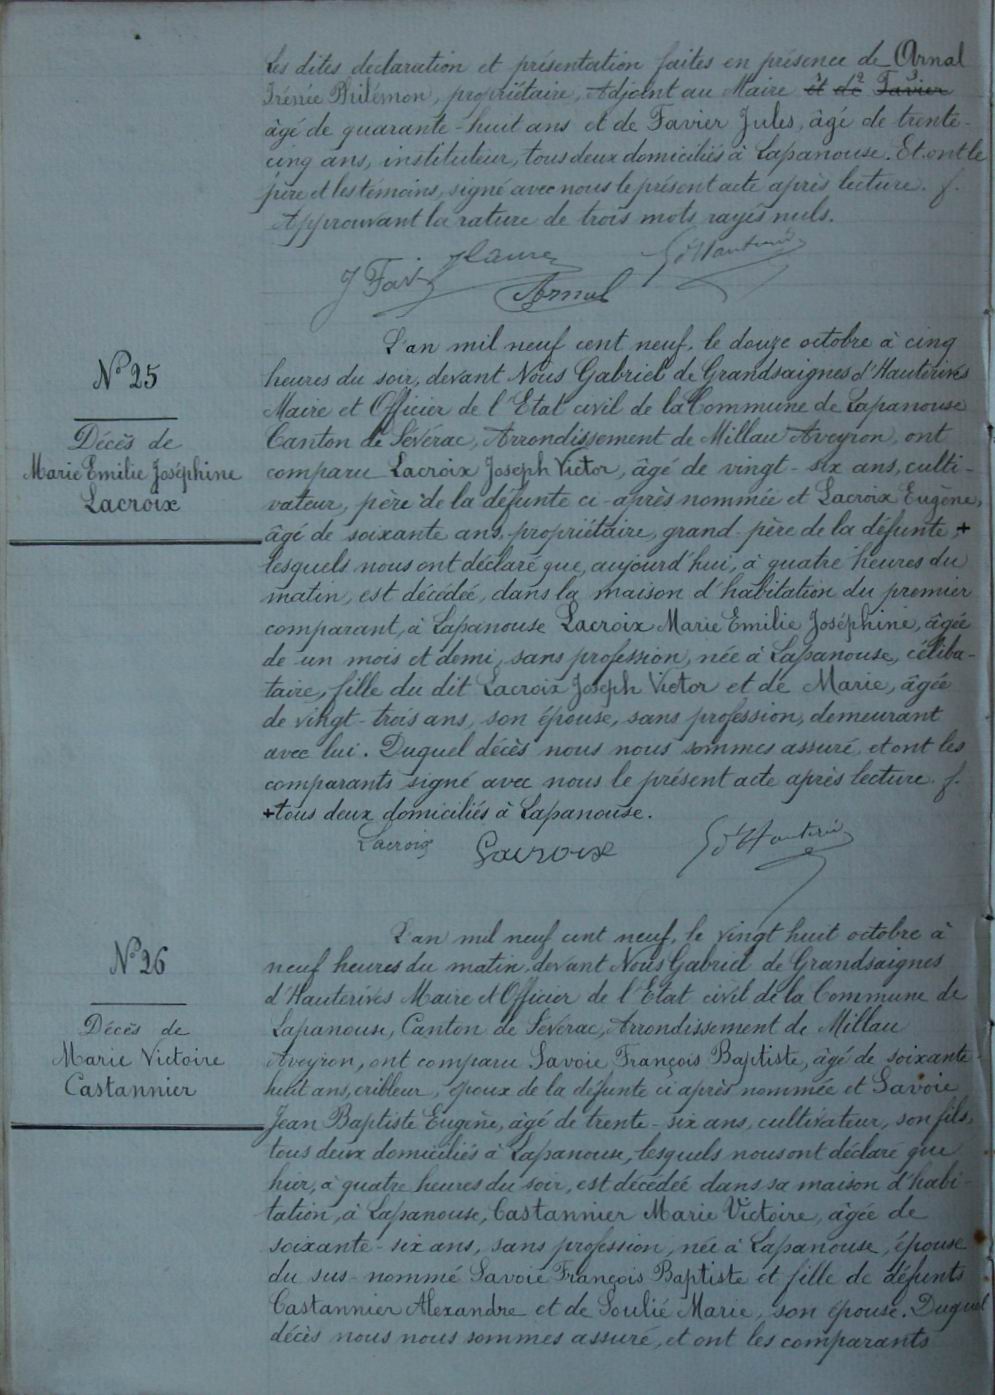 Les dites declaration et présentation faites en présence de Arnal
Irénée Philémon, propriétaire, Adjoint au Maire et de Favier
âgé de quarante-huit ans et de Favier Jules, âgé de trente-
cinq ans, instituteur, tous deux domiciliés à Lapanouse. Et ont le
père et les témoins, signé avec nous le présent acte après lecture. f.
Approuvant la rature de trois mots rayés nuls.
J Favier
Arnal
G d'Hauterives
L'an mil neuf cent neuf, le douze octobre à cinq
heures du soir, devant Nous Gabriel de Grandsaignes d'Hauterives
Maire et Officier de l'Etat civil de la Commune de Lapanouse
Canton de Sévérac, Arrondissement de Millau Aveyron, ont
comparu Lacroix Joseph Victor, âgé de vingt-six ans, culti-
vateur, père de la défunte ci-après nommée et Lacroix Eugène,
âgé de soixante ans, propriétaire, grand-père de la défunte, +
lesquels nous ont déclaré que, aujourd'hui, à quatre heures du
matin, est décédée, dans la maison d'habitation du premier
comparant, à Lapanouse Lacroix Marie Emilie Joséphine, âgée
de un mois et demi, sans profession, née à Lapanouse, céliba-
taire, fille du dit Lacroix Joseph Victor et de Marie, âgée
de vingt-trois ans, son épouse, sans profession, demeurant
avec lui. Duquel décès nous nous sommes assuré, et ont les
comparants signé avec nous le présent acte après lecture. f.
+ tous deux domiciliés à Lapanouse.
Lacroix Lacroix G d'Hauterives
N° 25
Décès de
Marie Emilie Joséphine
Lacroix
L'an mil neuf cent neuf, le vingt huit octobre à
neuf heures du matin, devant Nous Gabriel de Grandsaignes
d'Hauterives Maire et Officier de l'Etat civil de la Commune de
Lapanouse, Canton de Sévérac, Arrondissement de Millau
Aveyron, ont comparu Savoie François Baptiste, âgé de soixante-
huit ans, cribleur, époux de la défunte ci après nommée et Savoie
Jean Baptiste Eugène, âgé de trente-six ans, cultivateur, son fils,
tous deux domiciliés à Lapanouse, lesquels nous ont déclaré que
hier, à quatre heures du soir, est décédée dans sa maison d'habi-
tation, à Lapanouse, Castannier Marie Victoire, âgée de
soixante-six ans, sans profession, née à Lapanouse, épouse
du sus-nommé Savoie François Baptiste et fille de défunts
Castannier Alexandre et de Soulié Marie, son épouse. Duquel
décès nous nous sommes assuré, et ont les comparants
N° 26
Décès de
Marie Victoire
Castannier